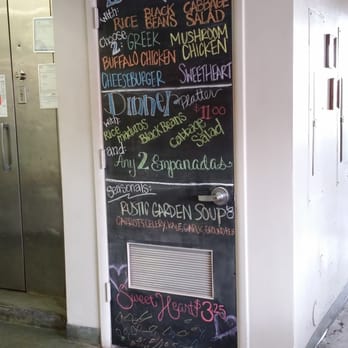 with:
RICE BLACK CABBAGE
BEANS SALAD
choose
2: GREEK MUSHROOM
CHICKEN
BUFFALO CHICKEN
CHEESEBURGER SWEETHEART
Dinner Platter
$11.00
with:
Rice maduros Black Beans Cabbage Salad
and:
Any 2 Empanadas
Seasonals:
RUSTIC GARDEN SOUP
CARROTS, CELERY, KALE, GARLIC,
Sweet Heart $3.25